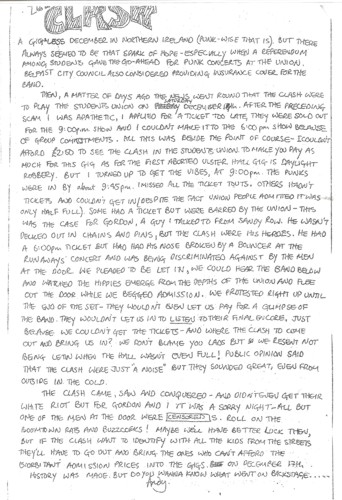 CLASH
A GIGLESS DECEMBER IN NORTHERN IRELAND (PUNK-WISE THAT IS). BUT THERE
ALWAYS SEEMED TO BE THAT SPARK OF HOPE - ESPECIALLY WHEN A REFERENDUM
AMONG STUDENTS GAVE THE GO-AHEAD FOR PUNK CONCERTS AT THE UNION.
BELFAST CITY COUNCIL ALSO CONSIDERED PROVIDING INSURANCE COVER FOR THE
BAND.
THEN, A MATTER OF DAYS AGO THE NEWS WENT ROUND THAT THE CLASH WERE
TO PLAY THE STUDENTS UNION ON SATURDAY DECEMBER. AFTER THE PRECEDING
SCAM I WAS APATHETIC, I APPLIED FOR A TICKET TOO LATE, THEY WERE SOLD OUT
FOR THE 9:00PM SHOW AND I COULDN'T MAKE IT TO THE 6:00PM SHOW BECAUSE
OF GROUP COMMITMENTS. ALL THIS WAS BESIDE THE POINT OF COURSE - I COULDN'T
AFFORD TO SEE THE CLASH IN THE STUDENTS UNION. TO MAKE YOU PAY AS
MUCH FOR THIS GIG AS FOR THE FIRST ABORTED ULSTER HALL GIG IS DAYLIGHT
ROBBERY. BUT I TURNED UP TO GET THE VIBES, AT 9:00PM. THE PUNKS
WERE IN BY ABOUT 9:45PM. I MISSED ALL THE TICKET TOUTS. OTHERS HADN'T
TICKETS AND COULDN'T GET IN (DESPITE THE FACT UNION PEOPLE ADMITTED IT WAS
ONLY HALF FULL). SOME HAD A TICKET BUT WERE BARRED BY THE UNION - THIS
WAS THE CASE FOR GORDON, A GUY I TALKED TO FROM SANDY ROW. HE WASN'T
DECKED OUT IN CHAINS AND PINS, BUT THE CLASH WERE HIS HEROES. HE HAD
A 6:00PM TICKET BUT HAD HAD HIS NOSE BROKEN BY A BOUNCER AT THE
RUNAWAYS' CONCERT AND WAS BEING DISCRIMINATED AGAINST BY THE MEN
AT THE DOOR. WE PLEADED TO BE LET IN, WE COULD HEAR THE BAND BELOW
AND WATCHED THE HIPPIES EMERGE FROM THE DEPTHS OF THE UNION AND FILE
OUT THE DOOR WHILE WE BEGGED ADMISSION. WE PROTESTED RIGHT UP UNTIL
THE END OF THE SET - THEY WOULDN'T EVEN LET US PAY FOR A GLIMPSE OF
THE BAND. THEY WOULDN'T LET US IN TO LISTEN TO THEIR FINAL ENCORE, JUST
BECAUSE WE COULDN'T GET THE TICKETS - AND WHERE THE CLASH TO COME
OUT AND BRING US IN? WE DON'T BLAME YOU LADS BUT WE RESENT NOT
BEING LET IN WHEN THE HALL WASN'T EVEN FULL! PUBLIC OPINION SAID
THAT THE CLASH WERE JUST "A NOISE" BUT THEY SOUNDED GREAT, EVEN FROM
OUTSIDE IN THE COLD.
THE CLASH CAME, SAW AND CONQUERED - AND DIDN'T EVEN GET THEIR
WHITE RIOT BUT FOR GORDON AND I IT WAS A SORRY NIGHT - ALL BUT
ONE OF THE MEN AT THE DOOR WERE CENSORED. ROLL ON THE
BOOMTOWN RATS AND BUZZCOCKS! MAYBE WE'LL HAVE BETTER LUCK THEN,
BUT IF THE CLASH WANT TO IDENTIFY WITH ALL THE KIDS FROM THE STREETS
THEY'LL HAVE TO GO OUT AND BRING THE ONES WHO CAN'T AFFORD THE
EXORBITANT ADMISSION PRICES INTO THE GIGS. ON DECEMBER 17TH,
HISTORY WAS MADE. BUT DO YOU WANNA KNOW WHAT WENT ON BACKSTAGE --
Andy.